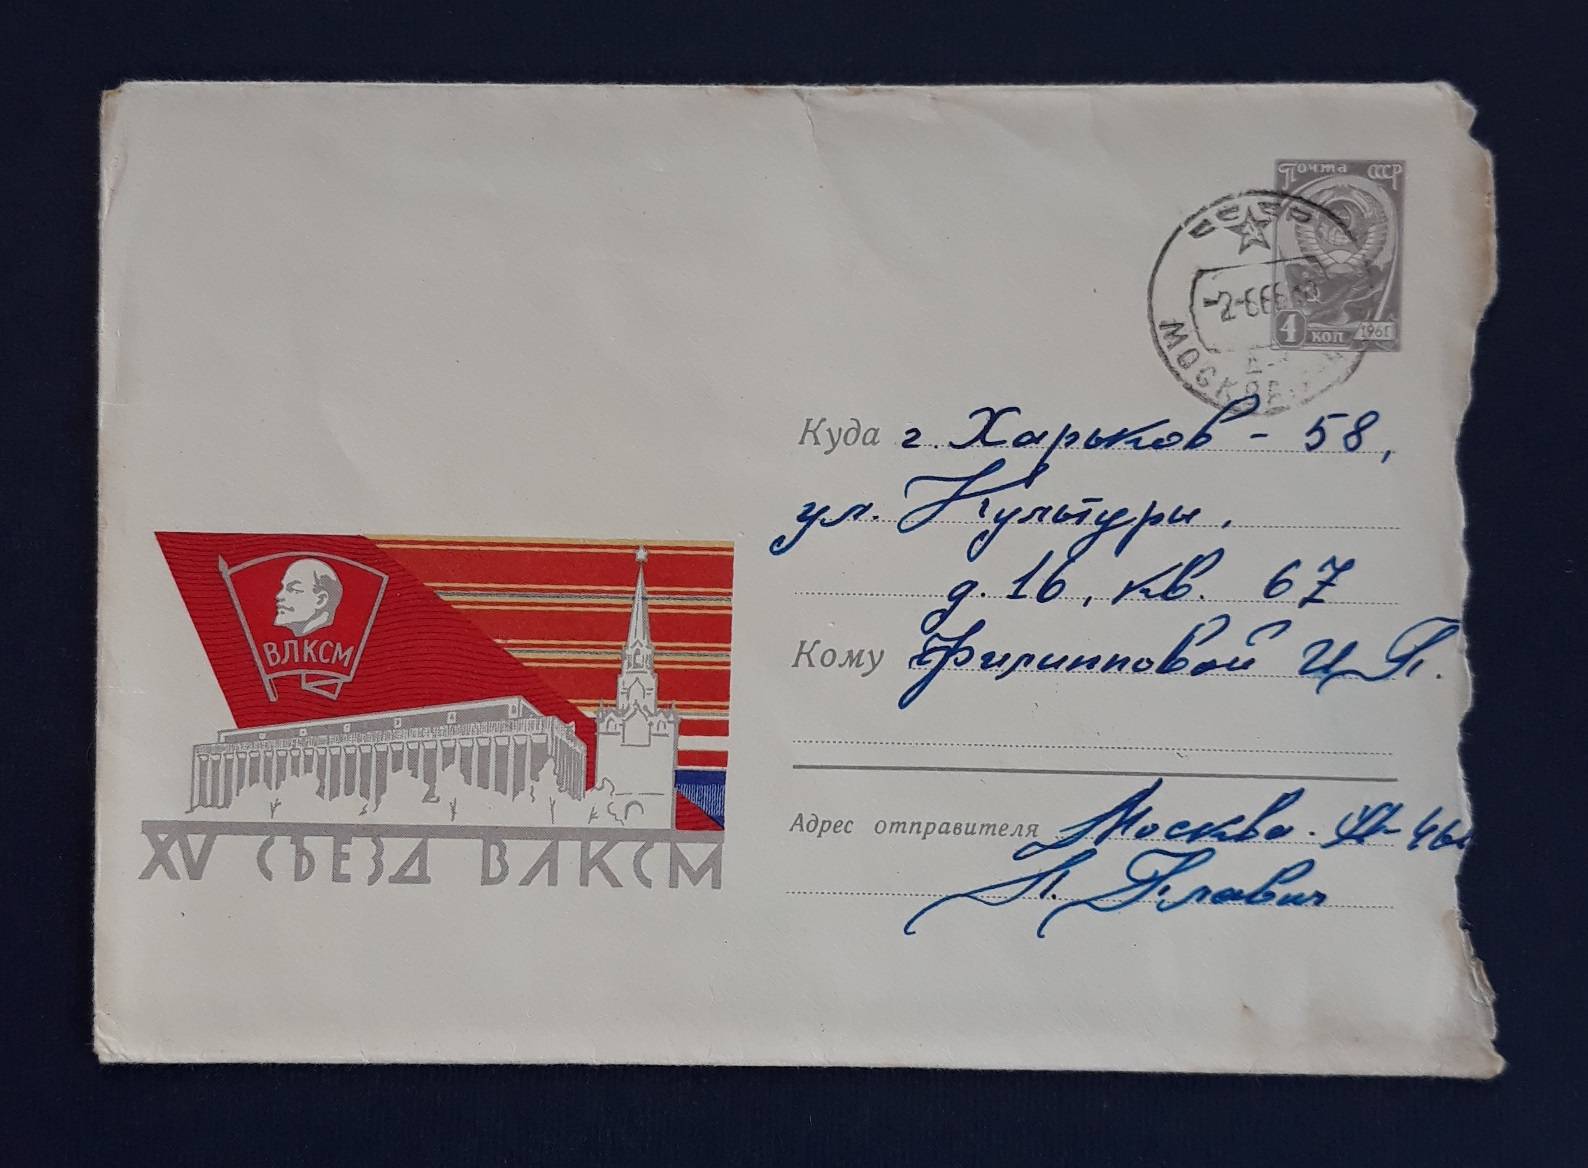 Почта СССР
СССР
-2-6 66
4 коп 1961
МОСКВА
Куда г. Харьков - 58,
ул. Культуры,
д. 16, кв. 67
Кому Филипповой И. П.
Адрес отправителя Москва
ВЛКСМ
XV СЪЕЗД ВЛКСМ